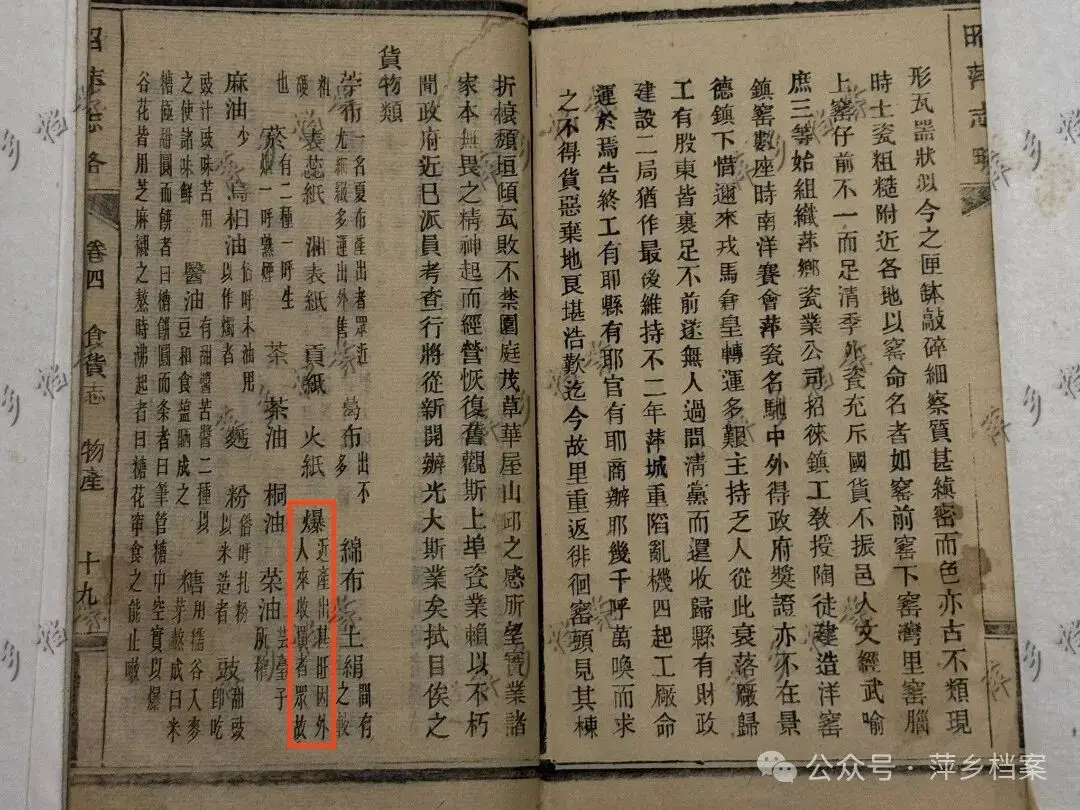 形瓦器狀似今之匣缽敲碎細察質甚縝密而色亦古不類現
時士瓷粗糙附近各地以窰命名者如窰前窰下窰灣里窰腦
上窰仔前不一而足清季外瓷充斥國貨不振邑人文經武喻
庶三等始組織萍鄉瓷業公司招徠鎮工敎授陶徒建造洋窰
鎮窰數座時南洋賽會萍瓷名馳中外得政府獎證亦不在景
德鎮下惜邇來戎馬倉皇轉運多艱主持乏人從此衰落廠歸
工有股東皆裹足不前遂無人過問淸黨而還收歸縣有財政
建設二局猶作最後維持不二年萍城重陷亂機四起工廠命
運於焉告終工有耶縣有耶官有耶商辦耶幾千呼萬喚而求
之不得貨惡棄地良堪浩歎迄今故里重返徘徊窰頭見其棟
折榱頹垣傾瓦敗不禁園庭茂草華屋山邱之感所望實業諸
家本無畏之精神起而經營恢復舊觀斯上埠瓷業賴以不朽
聞政府近已派員考查行將從新開辦光大斯業矣拭目俟之
貨物類
苧布一名夏布產出者眾近尤細緻多運出外售 葛布產出不多 綿布 土絹間有之較
粗硬 表蕊紙 湘表紙 貢紙 火紙 爆近產出甚旺因外人來收買者眾故
也 菸有二種一呼生菸一呼熟煙 茶 茶油 桐油 菜油芸薹子所榨
麻油少 烏桕油俗呼木油用以作燭者 麪 粉俗呼扎粉以米造者 豉甜豉卽吃
豉汁豉味苦用之使諸味鮮 醬油有甜醬苦醬二種以豆和食鹽晒成之 糖用糯谷入麥芽熬成曰米
糖極甜圓而餅者曰糖餅圓而条者曰筆管糖中空實以爆
谷花皆用芝麻襯之熬時沸起者曰糖花寧食之能止嗽
昭萍志略 卷四 食貨志 物產 十九
昭萍志略
公众号·萍乡档案